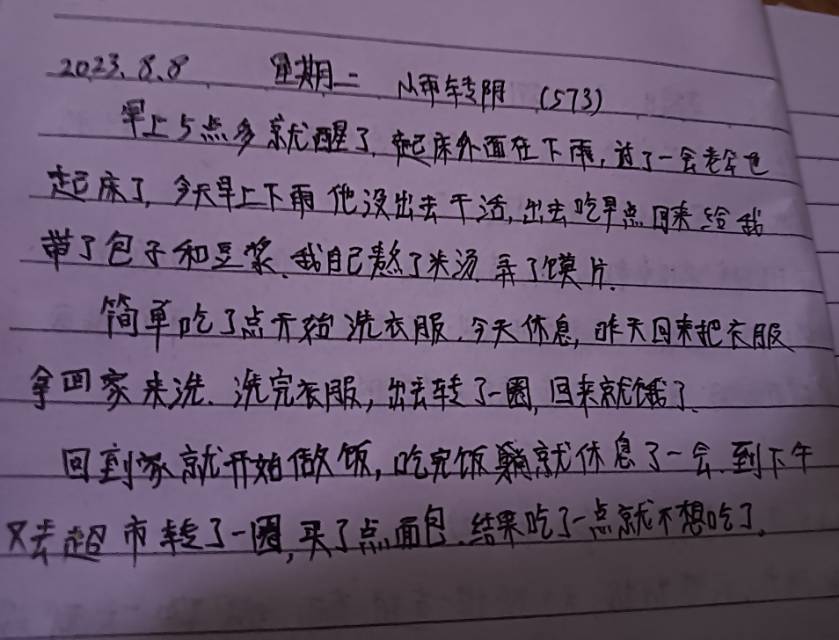 2023.8.8 星期二 小雨转阴 (573)
早上5点多就醒了,起床外面在下雨,过了一会老公也
起床了,今天早上下雨他没出去干活,出去吃早点回来给我
带了包子和豆浆,我自己熬了米汤,弄了馍片.
简单吃了点开始洗衣服.今天休息,昨天回来把衣服
拿回家来洗.洗完衣服,出去转了一圈,回来就饿了.
回到家就开始做饭,吃完饭躺就休息了一会.到下午
又去超市转了一圈,买了点面包.结果吃了一点就不想吃了.